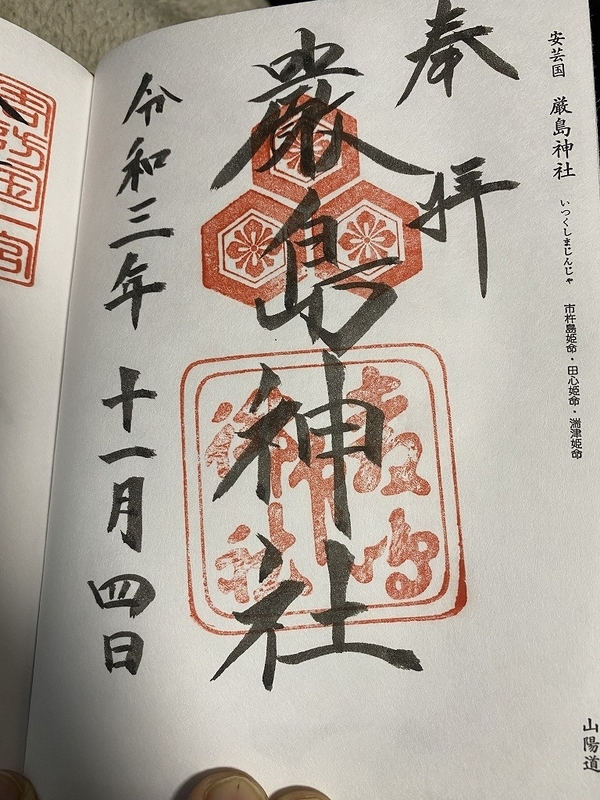 安芸国 厳島神社 いつくしまじんじゃ 市杵島姫命・田心姫命・湍津姫命
山陽道
奉拝
厳島神社
令和三年 十一月四日
厳島
神社
周防国一宮